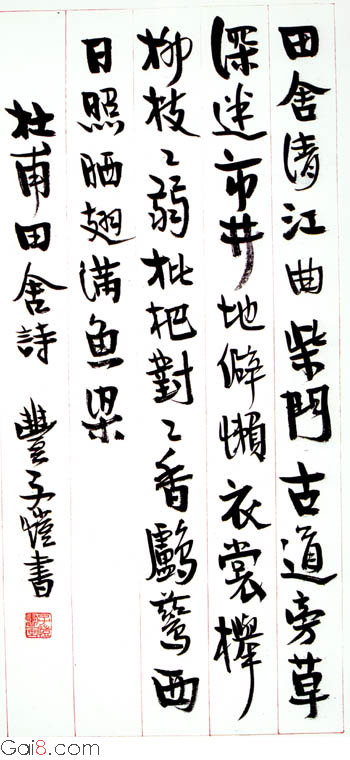 田舍清江曲柴門古道旁草
深迷市井地僻懶衣裳櫸
柳枝〻弱枇杷對〻香鸕鶿西
日照晒翅满鱼梁
杜甫田舍詩 豐子愷書
Gai8.com